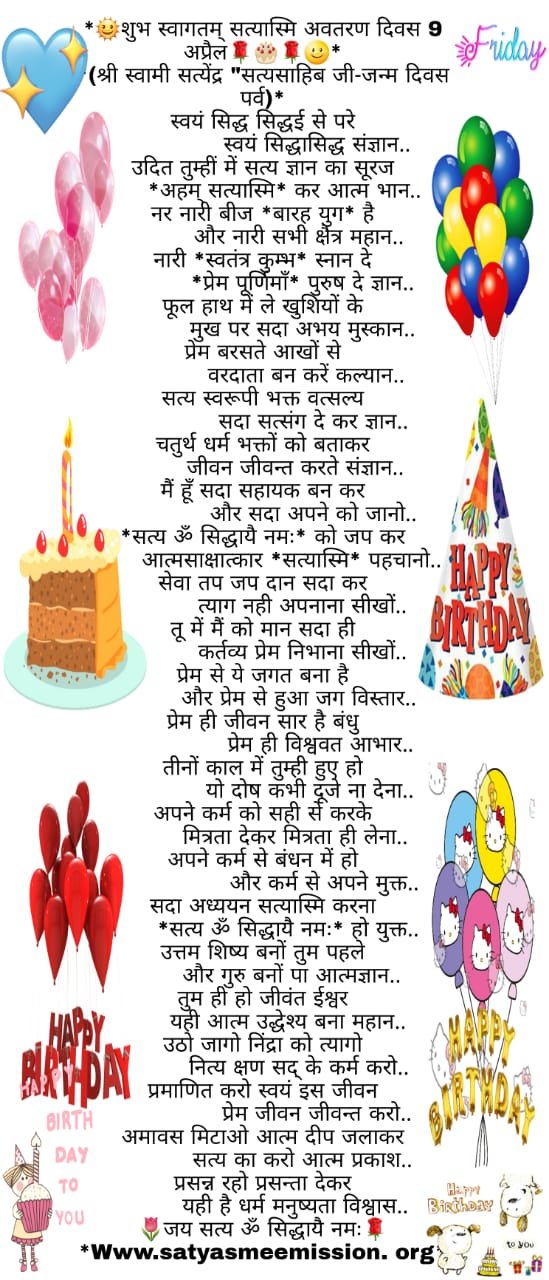 *🌞शुभ स्वागतम् सत्यास्मि अवतरण दिवस 9
अप्रैल🌹🎂🌹🌝*
(श्री स्वामी सत्येंद्र "सत्यसाहिब जी-जन्म दिवस
पर्व)*
Friday
स्वयं सिद्ध सिद्धई से परे
स्वयं सिद्धासिद्ध संज्ञान..
उदित तुम्हीं में सत्य ज्ञान का सूरज
*अहम् सत्यास्मि* कर आत्म भान..
नर नारी बीज *बारह युग* है
और नारी सभी क्षैत्र महान..
नारी *स्वतंत्र कुम्भ* स्नान दे
*प्रेम पूर्णिमाँ* पुरुष दे ज्ञान..
फूल हाथ में ले खुशियों के
मुख पर सदा अभय मुस्कान..
प्रेम बरसते आखों से
वरदाता बन करें कल्यान..
सत्य स्वरूपी भक्त वत्सल्य
सदा सत्संग दे कर ज्ञान..
चतुर्थ धर्म भक्तों को बताकर
जीवन जीवन्त करते संज्ञान..
मैं हूँ सदा सहायक बन कर
और सदा अपने को जानो..
*सत्य ॐ सिद्धायै नमः* को जप कर
आत्मसाक्षात्कार *सत्यास्मि* पहचानो..
सेवा तप जप दान सदा कर
त्याग नही अपनाना सीखों..
तू में मैं को मान सदा ही
कर्तव्य प्रेम निभाना सीखों..
प्रेम से ये जगत बना है
और प्रेम से हुआ जग विस्तार..
प्रेम ही जीवन सार है बंधु
प्रेम ही विश्ववत आभार..
तीनों काल में तुम्ही हुए हो
यो दोष कभी दूजे ना देना..
अपने कर्म को सही से करके
मित्रता देकर मित्रता ही लेना..
अपने कर्म से बंधन में हो
और कर्म से अपने मुक्त..
सदा अध्ययन सत्यास्मि करना
*सत्य ॐ सिद्धायै नमः* हो युक्त..
उत्तम शिष्य बनों तुम पहले
और गुरु बनों पा आत्मज्ञान..
तुम ही हो जीवंत ईश्वर
यही आत्म उद्धेश्य बना महान..
उठो जागो निंद्रा को त्यागो
नित्य क्षण सद् के कर्म करो..
प्रमाणित करो स्वयं इस जीवन
प्रेम जीवन जीवन्त करो..
अमावस मिटाओ आत्म दीप जलाकर
सत्य का करो आत्म प्रकाश..
प्रसन्न रहो प्रसन्ता देकर
यही है धर्म मनुष्यता विश्वास..
🌷जय सत्य ॐ सिद्धायै नमः🌹
*Www.satyasmeemission. org*
HAPPY
BIRTHDAY
HAPPY
BIRTHDAY
HAPPY
BIRTH
DAY
TO
YOU
HAPPY
BIRTHDAY
Happy
Birthday
to you